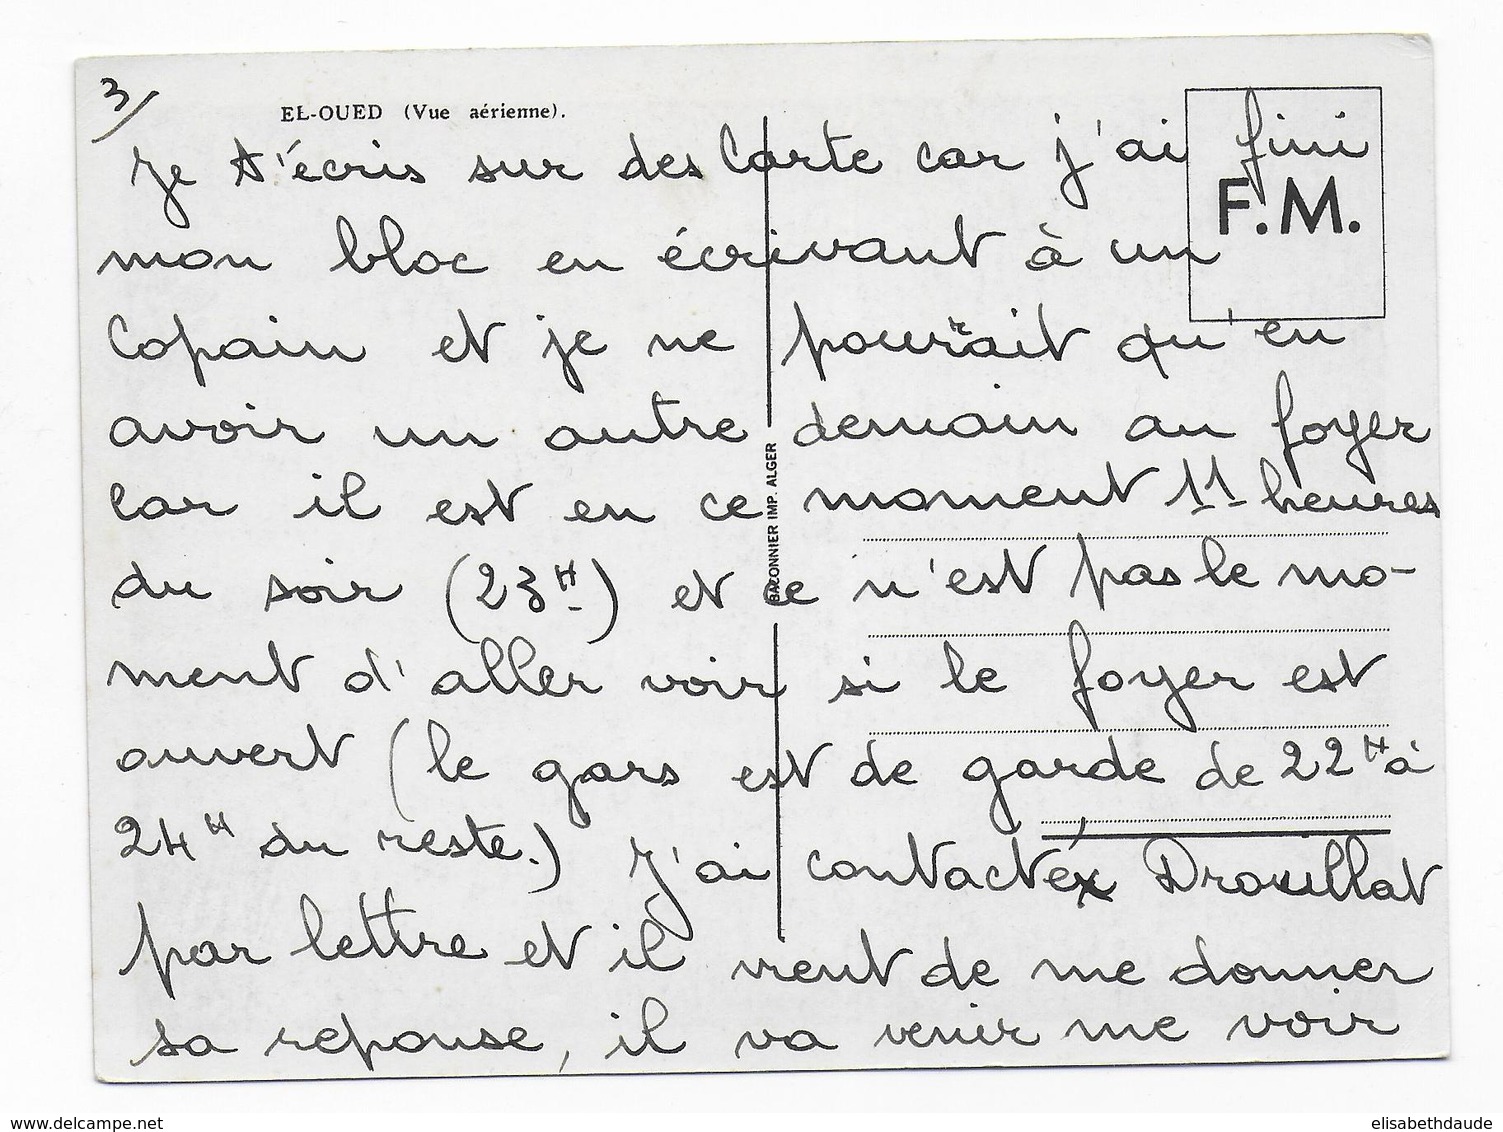 3/
EL-OUED (Vue aérienne).
F.M.
Je t'écris sur des Carte car j'ai fini
mon bloc en écrivant à un
Copain et je ne pourrait qu'en
avoir un autre demain au foyer
Car il est en ce moment 11 heures
du soir (23H) et ce n'est pas le mo-
ment d'aller voir si le foyer est
ouvert (le gars est de garde de 22H à
24H du reste.) J'ai contacté Drouillat
par lettre et il vient de me donner
sa reponse, il va venir me voir
BACONNIER IMP. ALGER
www.delcampe.net
elisabethdaude